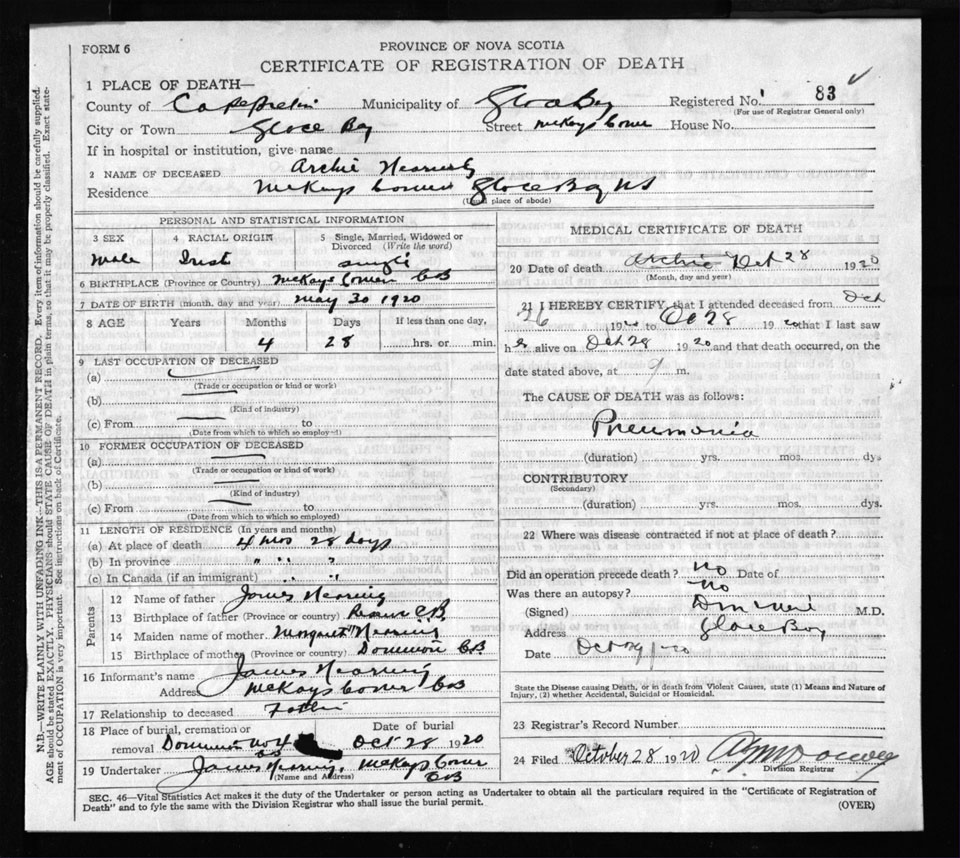 FORM 6
PROVINCE OF NOVA SCOTIA
CERTIFICATE OF REGISTRATION OF DEATH
N.B.—WRITE PLAINLY WITH UNFADING INK—THIS IS A PERMANENT RECORD. Every item of information should be carefully supplied.
AGE should be stated EXACTLY. PHYSICIANS should STATE CAUSE OF DEATH in plain terms, so that it may be properly classified. Exact state-
ment of OCCUPATION is very important. See instructions on back of Certificate.
1 PLACE OF DEATH—
County of Cape Breton Municipality of Glace Bay Registered No. 83
(For use of Registrar General only)
City or Town Glace Bay Street McKays Corner House No.
If in hospital or institution, give name
2 NAME OF DECEASED Archie
Residence McKays Corner Glace Bay NS
(Usual place of abode)
PERSONAL AND STATISTICAL INFORMATION
3 SEX 4 RACIAL ORIGIN 5 Single, Married, Widowed or Divorced (Write the word)
Male single
6 BIRTHPLACE (Province or Country) McKays Corner CB
7 DATE OF BIRTH (month, day and year) May 30 1920
8 AGE Years Months Days If less than one day,
4 28 hrs. or min.
9 LAST OCCUPATION OF DECEASED
(a)
(Trade or occupation or kind or work)
(b)
(Kind of industry)
(c) From to
(Date from which to which so employed)
10 FORMER OCCUPATION OF DECEASED
(a)
(Trade or occupation or kind of work)
(b)
(Kind of industry)
(c) From to
(Date from which to which so employed)
11 LENGTH OF RESIDENCE (In years and months)
(a) At place of death 4 mos 28 days
(b) In province " " "
(c) In Canada (if an immigrant) " "
Parents
12 Name of father James Nearing
13 Birthplace of father (Province or country) C.B.
14 Maiden name of mother Margaret Nearing
15 Birthplace of mother (Province or country) Dominion CB
16 Informant's name James Nearing
Address McKays Corner CB
17 Relationship to deceased Father
18 Place of burial, cremation or removal Dominion No 4 CB
Date of burial Oct 28 1920
19 Undertaker James Nearing, McKays Corner CB
(Name and Address)
MEDICAL CERTIFICATE OF DEATH
20 Date of death Archie Oct 28 1920
(Month, day and year)
21 I HEREBY CERTIFY, that I attended deceased from Oct
26 1920 to Oct 28 1920 that I last saw
h alive on Oct 28 1920 and that death occurred, on the
date stated above, at 9 m.
The CAUSE OF DEATH was as follows:
Pneumonia
(duration) yrs. mos. dys
CONTRIBUTORY
(Secondary)
(duration) yrs. mos. dys.
22 Where was disease contracted if not at place of death?
Did an operation precede death? No Date of
Was there an autopsy? No
(Signed) M.D.
Address Glace Bay
Date Oct
State the Disease causing Death, or in death from Violent Causes, state (1) Means and Nature of
Injury, (2) whether Accidental, Suicidal or Homicidal.
23 Registrar's Record Number
24 Filed October 28 1920
Division Registrar
SEC. 46—Vital Statistics Act makes it the duty of the Undertaker or person acting as Undertaker to obtain all the particulars required in the "Certificate of Registration of
Death" and to fyle the same with the Division Registrar who shall issue the burial permit.
(OVER)